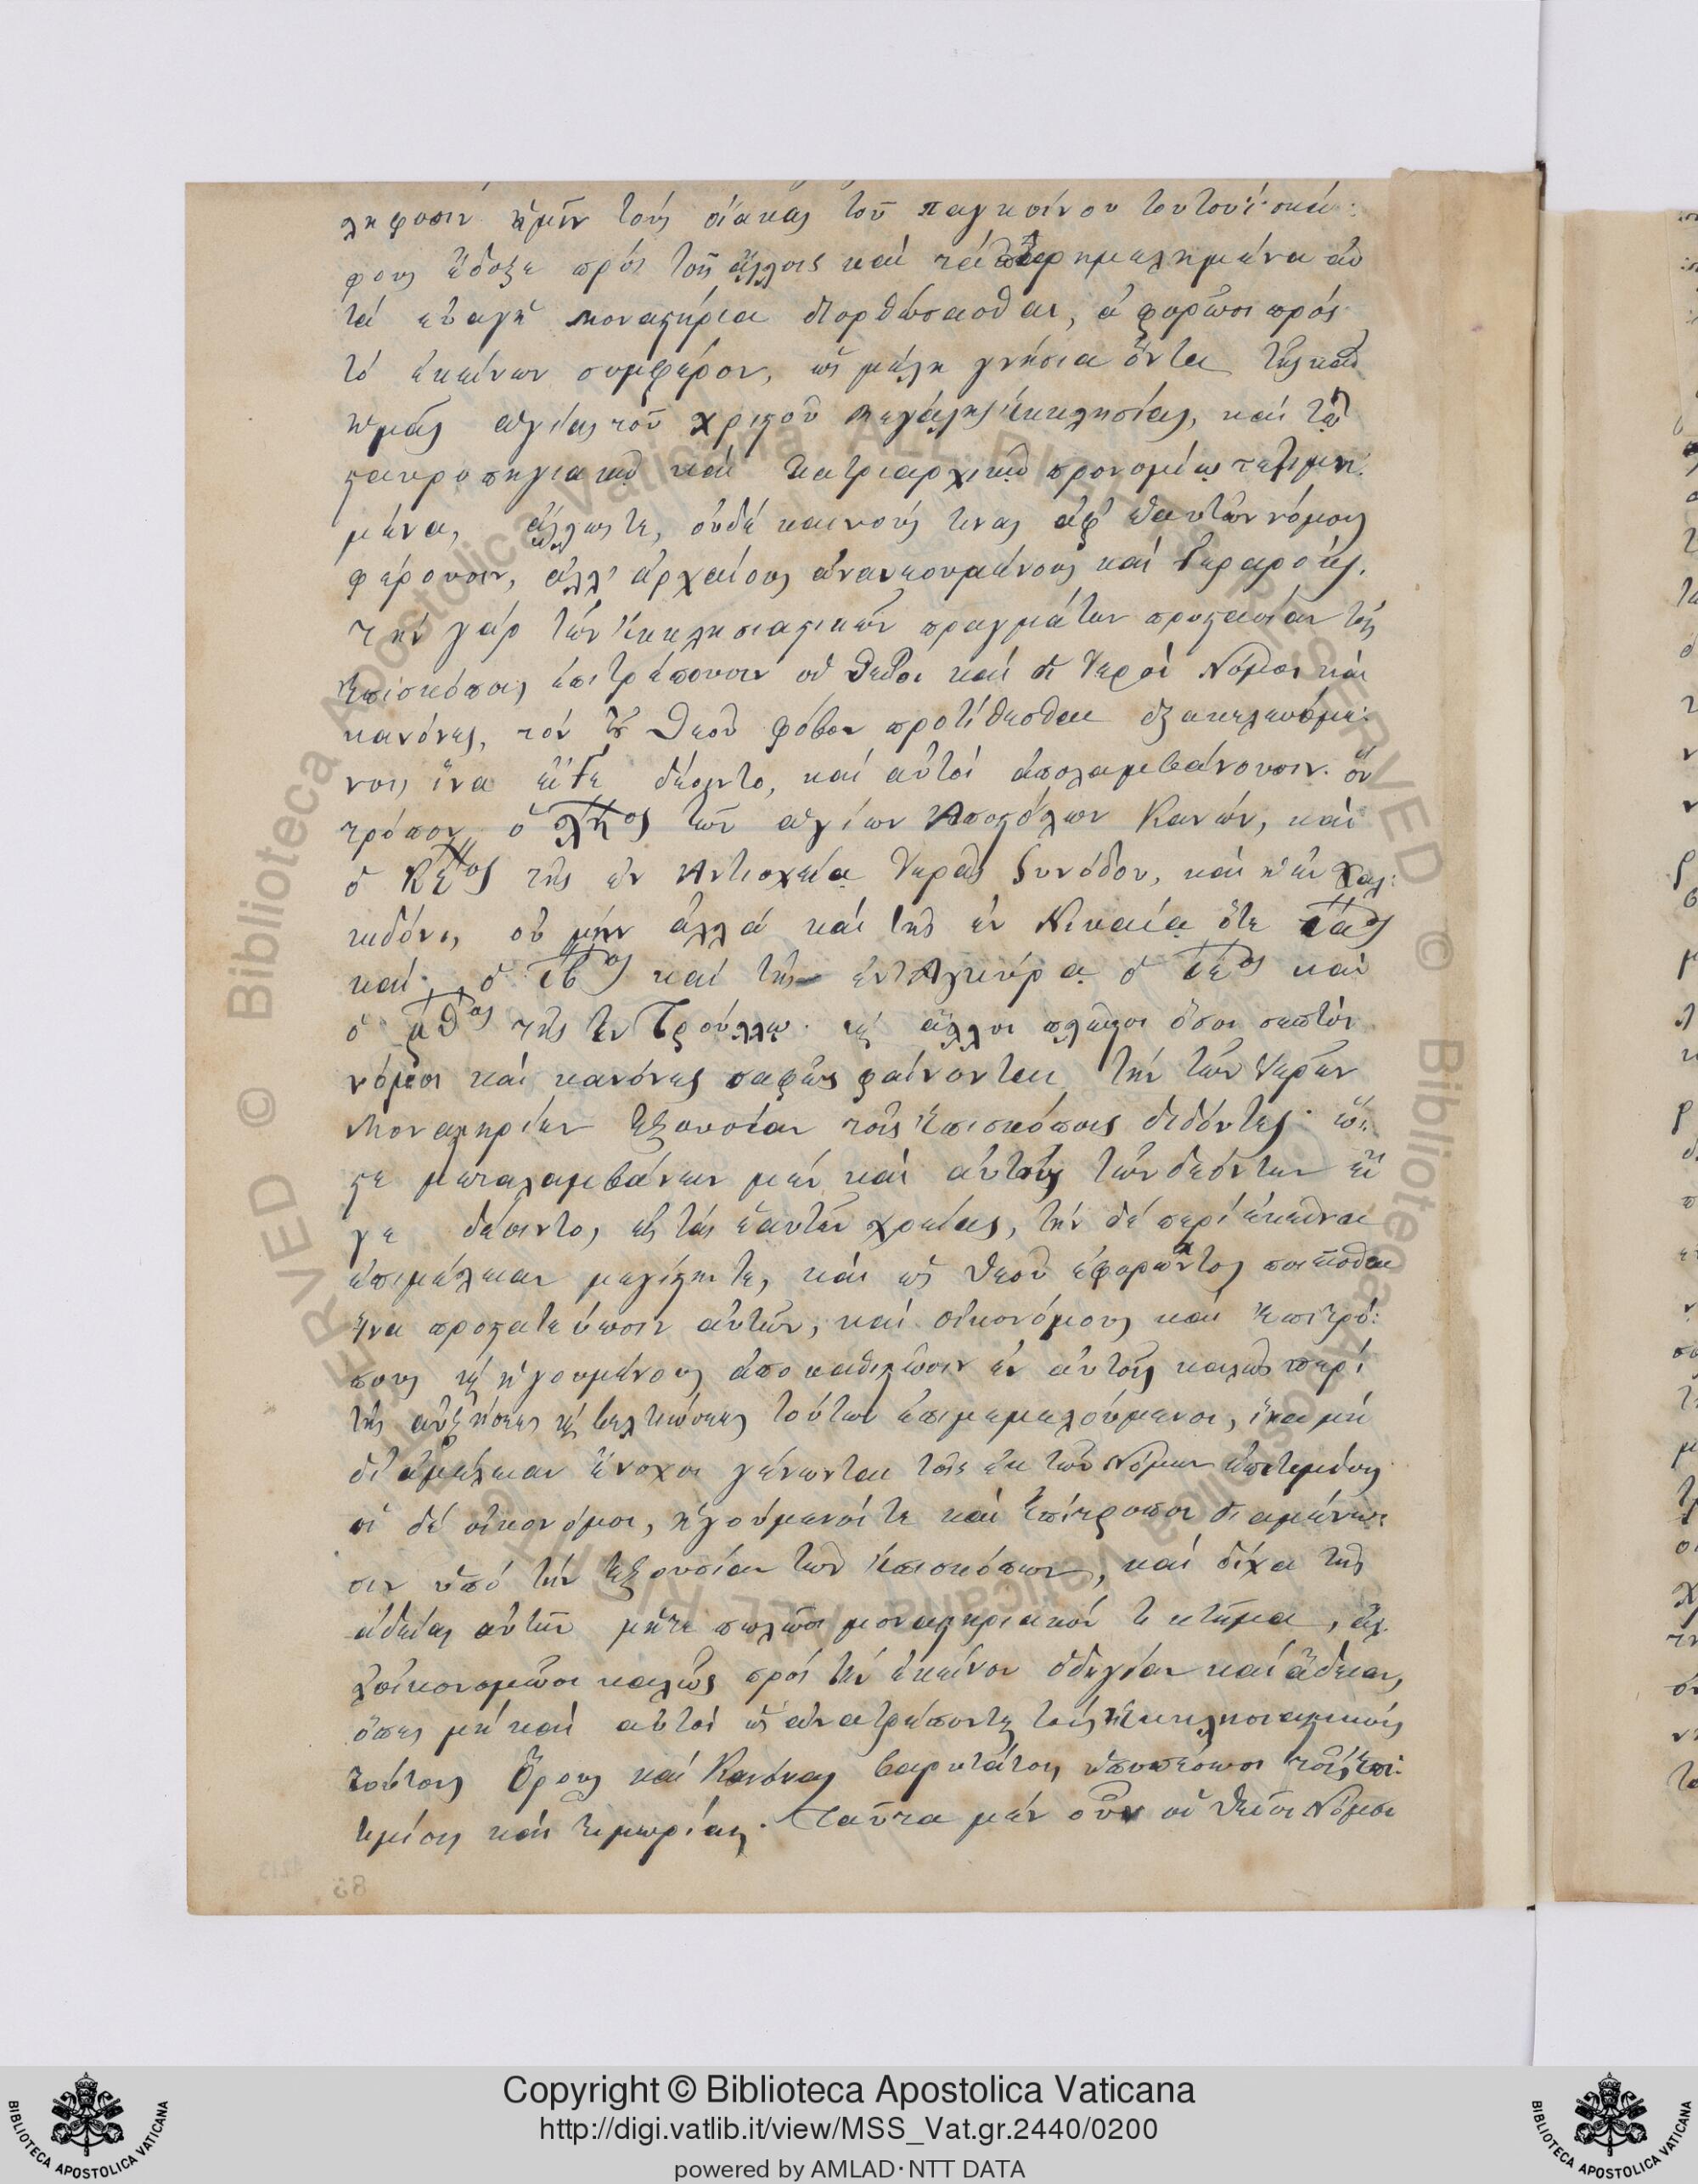 ληφοσιν ἡμῖν τοὺς οἴακας τοῦ παγκοίνου τουτουῒ σκά:
φους ἔδοξε πρὸς τοῖς ἄλλοις καὶ τὰ παρημελημένα αὐ
τὰ εὐαγῆ μοναστήρια διορθώσασθαι, ἀφορῶσι πρὸς
τὸ ἐκείνων συμφέρον, ὡς μέλη γνήσια ὄντα τῆς καθ'
ἡμᾶς ἁγίας τοῦ χριστοῦ μεγάλης ἐκκλησίας, καὶ τῷ
σταυροπηγιακῷ καὶ πατριαρχικῷ προνομίῳ τετιμη:
μένα, ἄλλωστε, οὐδὲ καινούς τινας ἀφ' ἑαυτῶν νόμους
φέρουσιν, ἀλλ' ἀρχαίους ἀνανεουμένους καὶ ἱεραρούς.
τὴν γὰρ τῶν ἐκκλησιαστικῶν πραγμάτων προστασίαν τοῖς
ἐπισκόποις ἐπιτρέπουσιν οἱ θεῖοι καὶ οἱ ἱεροὶ Νόμοι καὶ
κανόνες, τὸν τοῦ Θεοῦ φόβον προτίθεσθαι διακελευόμε:
νοις ἵνα εἴγε δέοιντο, καὶ αὐτοὶ ἀπολαμβάνουσιν. ὃν
τρόπον ὁ λη´ος τῶν ἁγίων Ἀποστόλων Κανών, καὶ
ὁ κε´ος τῆς ἐν Ἀντιοχείᾳ ἱερᾶς Συνόδου, καὶ ἡ ἐν Χαλ:
κιδόνι, οὐ μὴν ἀλλὰ καὶ τῆς ἐν Νικαίᾳ ὅτε ια´ος
καὶ ὁ ιβ´ος καὶ τῆς ἐν Ἀγκύρᾳ ὁ ιε´ος καὶ
ὁ μθ´ος τῆς ἐν Τρούλλῳ. καὶ ἄλλοι πλεῖστοι ὅσοι σεπτοὶ
νόμοι καὶ κανόνες σαφῶς φαίνονται τὴν τῶν ἱερῶν
Μοναστηρίων ἐξουσίαν τοῖς ἐπισκόποις διδόντες. ὥ:
στε μεταλαμβάνειν μὲν καὶ αὐτοὺς τῶν δεόντων εἴ
γε δέοιντο, εἰς τὰς ἑαυτῶν χρείας, τὴν δὲ περὶ ἐκεῖνα
ἐπιμέλειαν μεγίστην τε, καὶ ὡς Θεοῦ ἐφορῶντος ποιεῖσθαι
ἵνα προστατεύωσιν αὐτῶν, καὶ οἰκονόμους καὶ ἐπιτρό:
πους καὶ ἡγουμένους ἀποκαθιστῶσιν ἐν αὐτοῖς καλῶς περὶ
τῆς αὐξήσεως καὶ βελτιώσεως τούτων ἐπιμεμελούμενοι, ἵνα μὴ
δι' ἀμέλειαν ἔνοχοι γένωνται τοῖς ἐκ τῶν Νόμων ἐπιτιμίοις
οἱ δὲ οἰκονόμοι, ἡγούμενοί τε καὶ ἐπίτροποι διαμένω:
σιν ὑπὸ τὴν ἐξουσίαν τῶν ἐπισκόπων, καὶ δίχα τῆς
ἀδείας αὐτῶν μήτε πωλῶσι μοναστηριακόν τι κτῆμα, ἀλ
λ' οἰκονομῶσι καλῶς πρὸς τὴν ἐκείνων ὁδηγίαν καὶ ἄδειαν,
ὅπως μὴ καὶ αὐτοὶ ὡς ἀνατρέποντες τοὺς ἐκκλησιαστικοὺς
τούτους Ὅρους καὶ Κανόνας βαρυτάτοις ὑποπέσωσι τοῖς ἐπι:
τιμίοις καὶ τιμωρίαις. Ταῦτα μὲν οὖν οἱ θεῖοι Νόμοι
88
© Biblioteca Apostolica Vaticana ALL RIGHTS RESERVED
Copyright © Biblioteca Apostolica Vaticana
http://digi.vatlib.it/view/MSS_Vat.gr.2440/0200
powered by AMLAD·NTT DATA
BIBLIOTECA APOSTOLICA VATICANA
BIBLIOTECA APOSTOLICA VATICANA